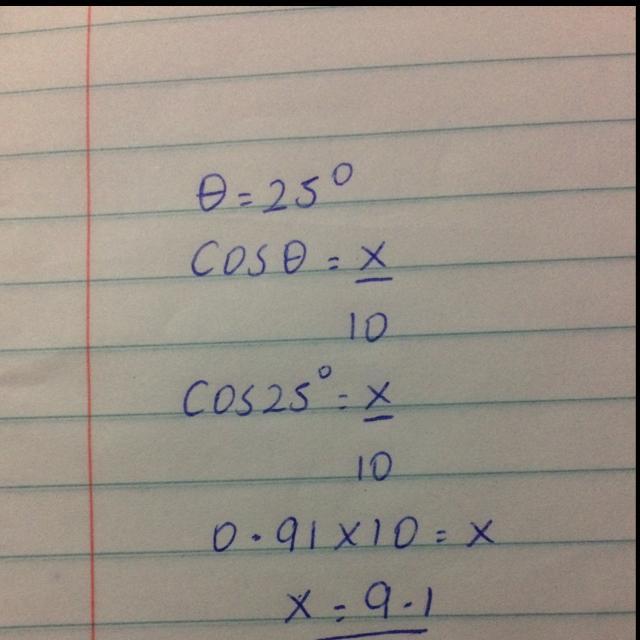 θ = 25°
COSθ = x
10
COS25° = x
10
0.91 x 10 = x
x = 9.1